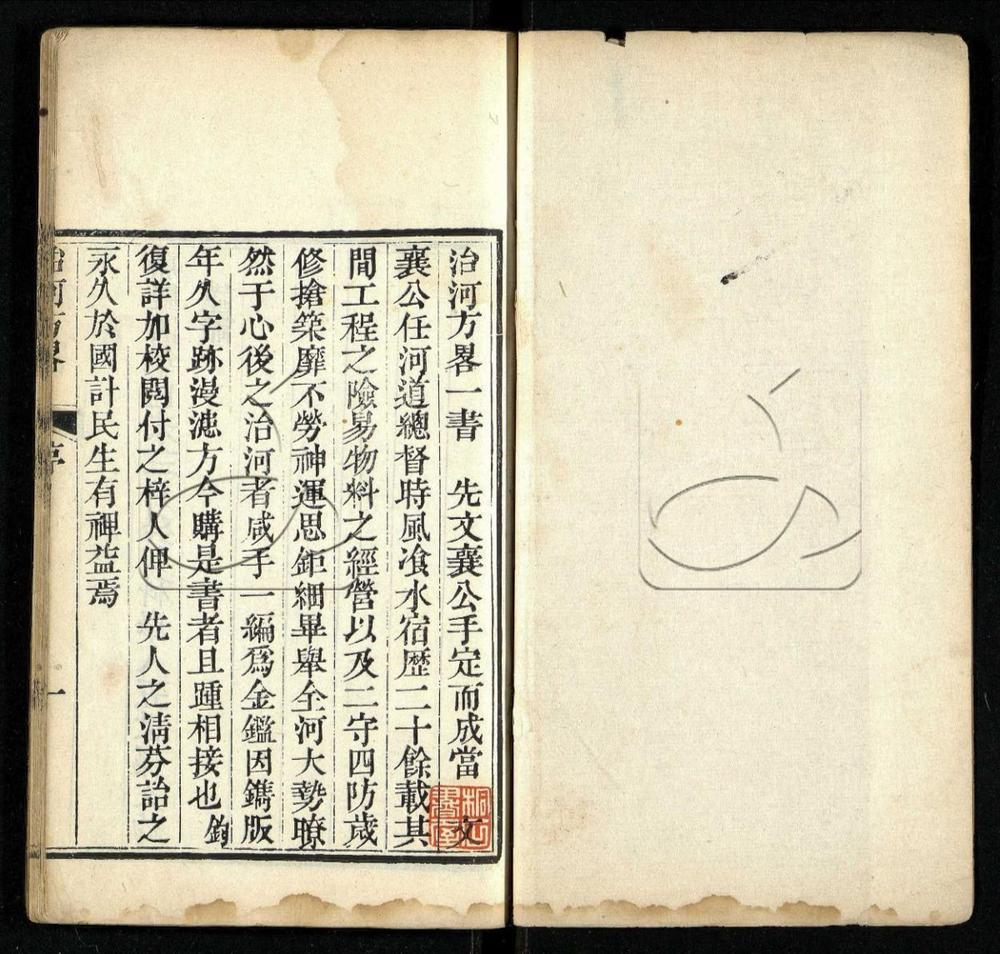 治河方畧一書　先文襄公手定而成當　文
襄公任河道總督時風飡水宿歷二十餘載其
間工程之險易物料之經營以及二守四防歲
修搶築靡不勞神運思鉅細畢舉全河大勢瞭
然于心後之治河者咸手一編爲金鑑因鐫版
年久字跡漫漶方今購是書者且踵相接也鈞
復詳加校閱付之梓人俾　先人之淸芬詒之
永久於國計民生有禆益焉
治河方畧
序
一